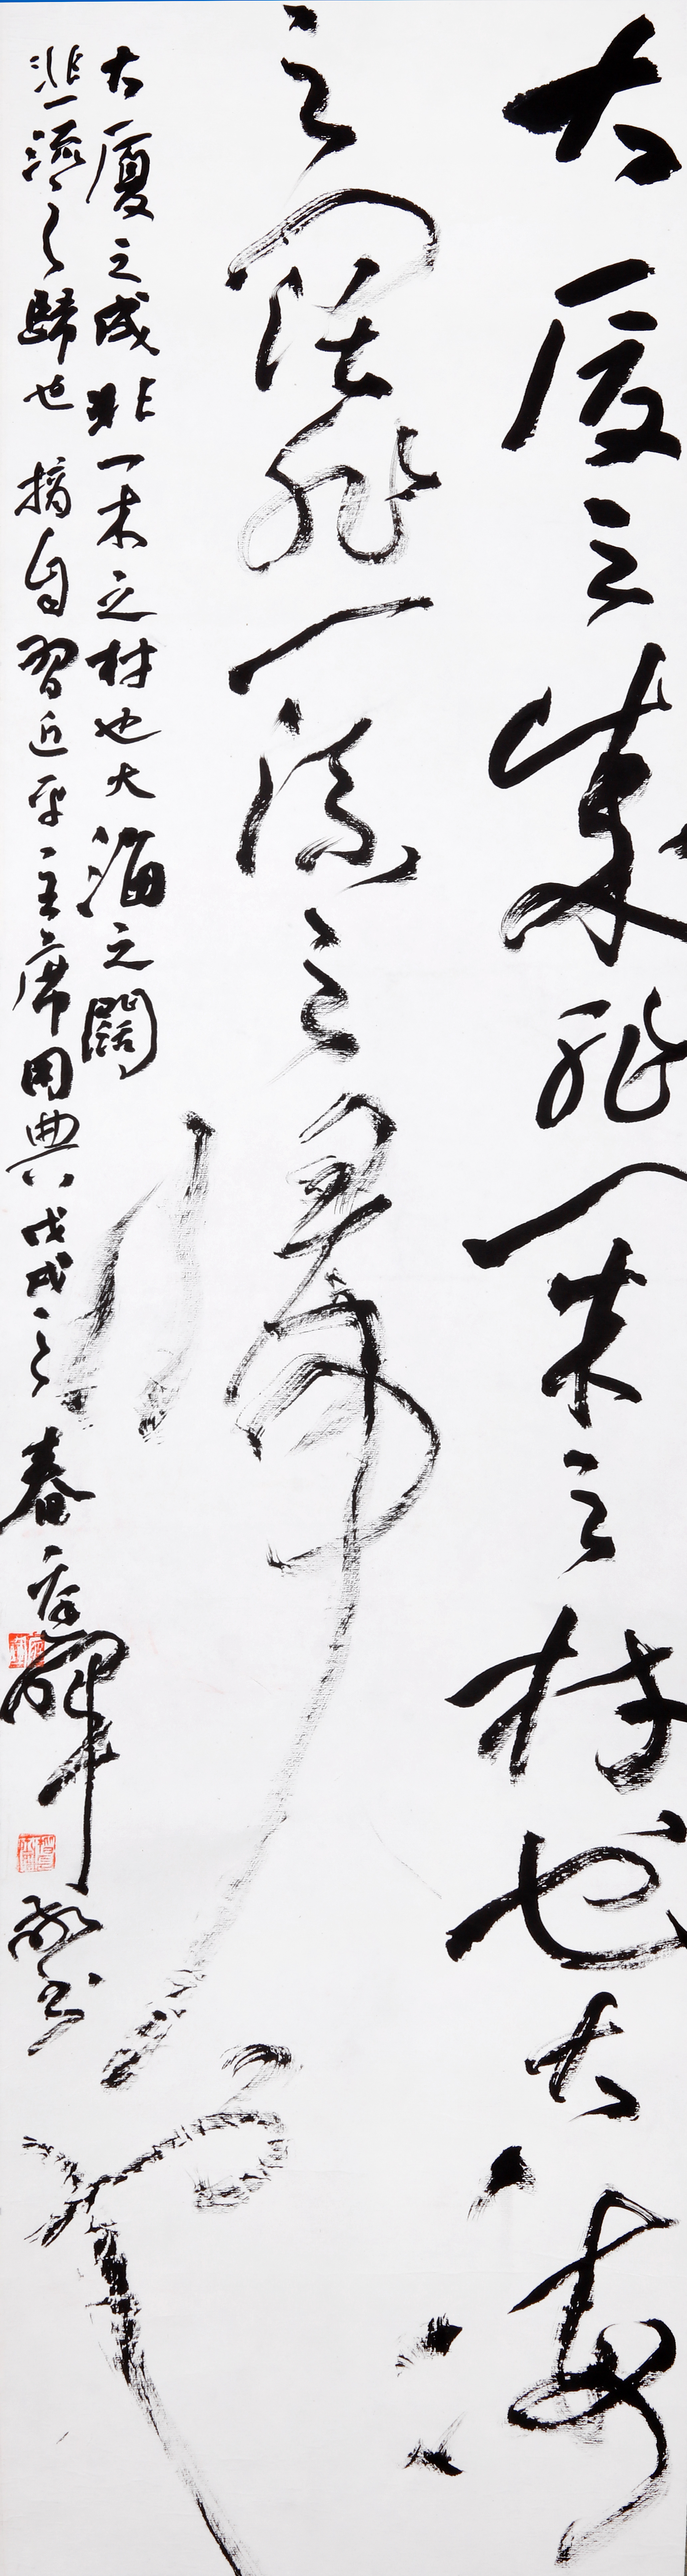 大厦之成非一木之材也大海
之阔非一流之歸也
大廈之成非一木之材也大海之闊
非一流之歸也摘自習近平主席用典戊戌之春